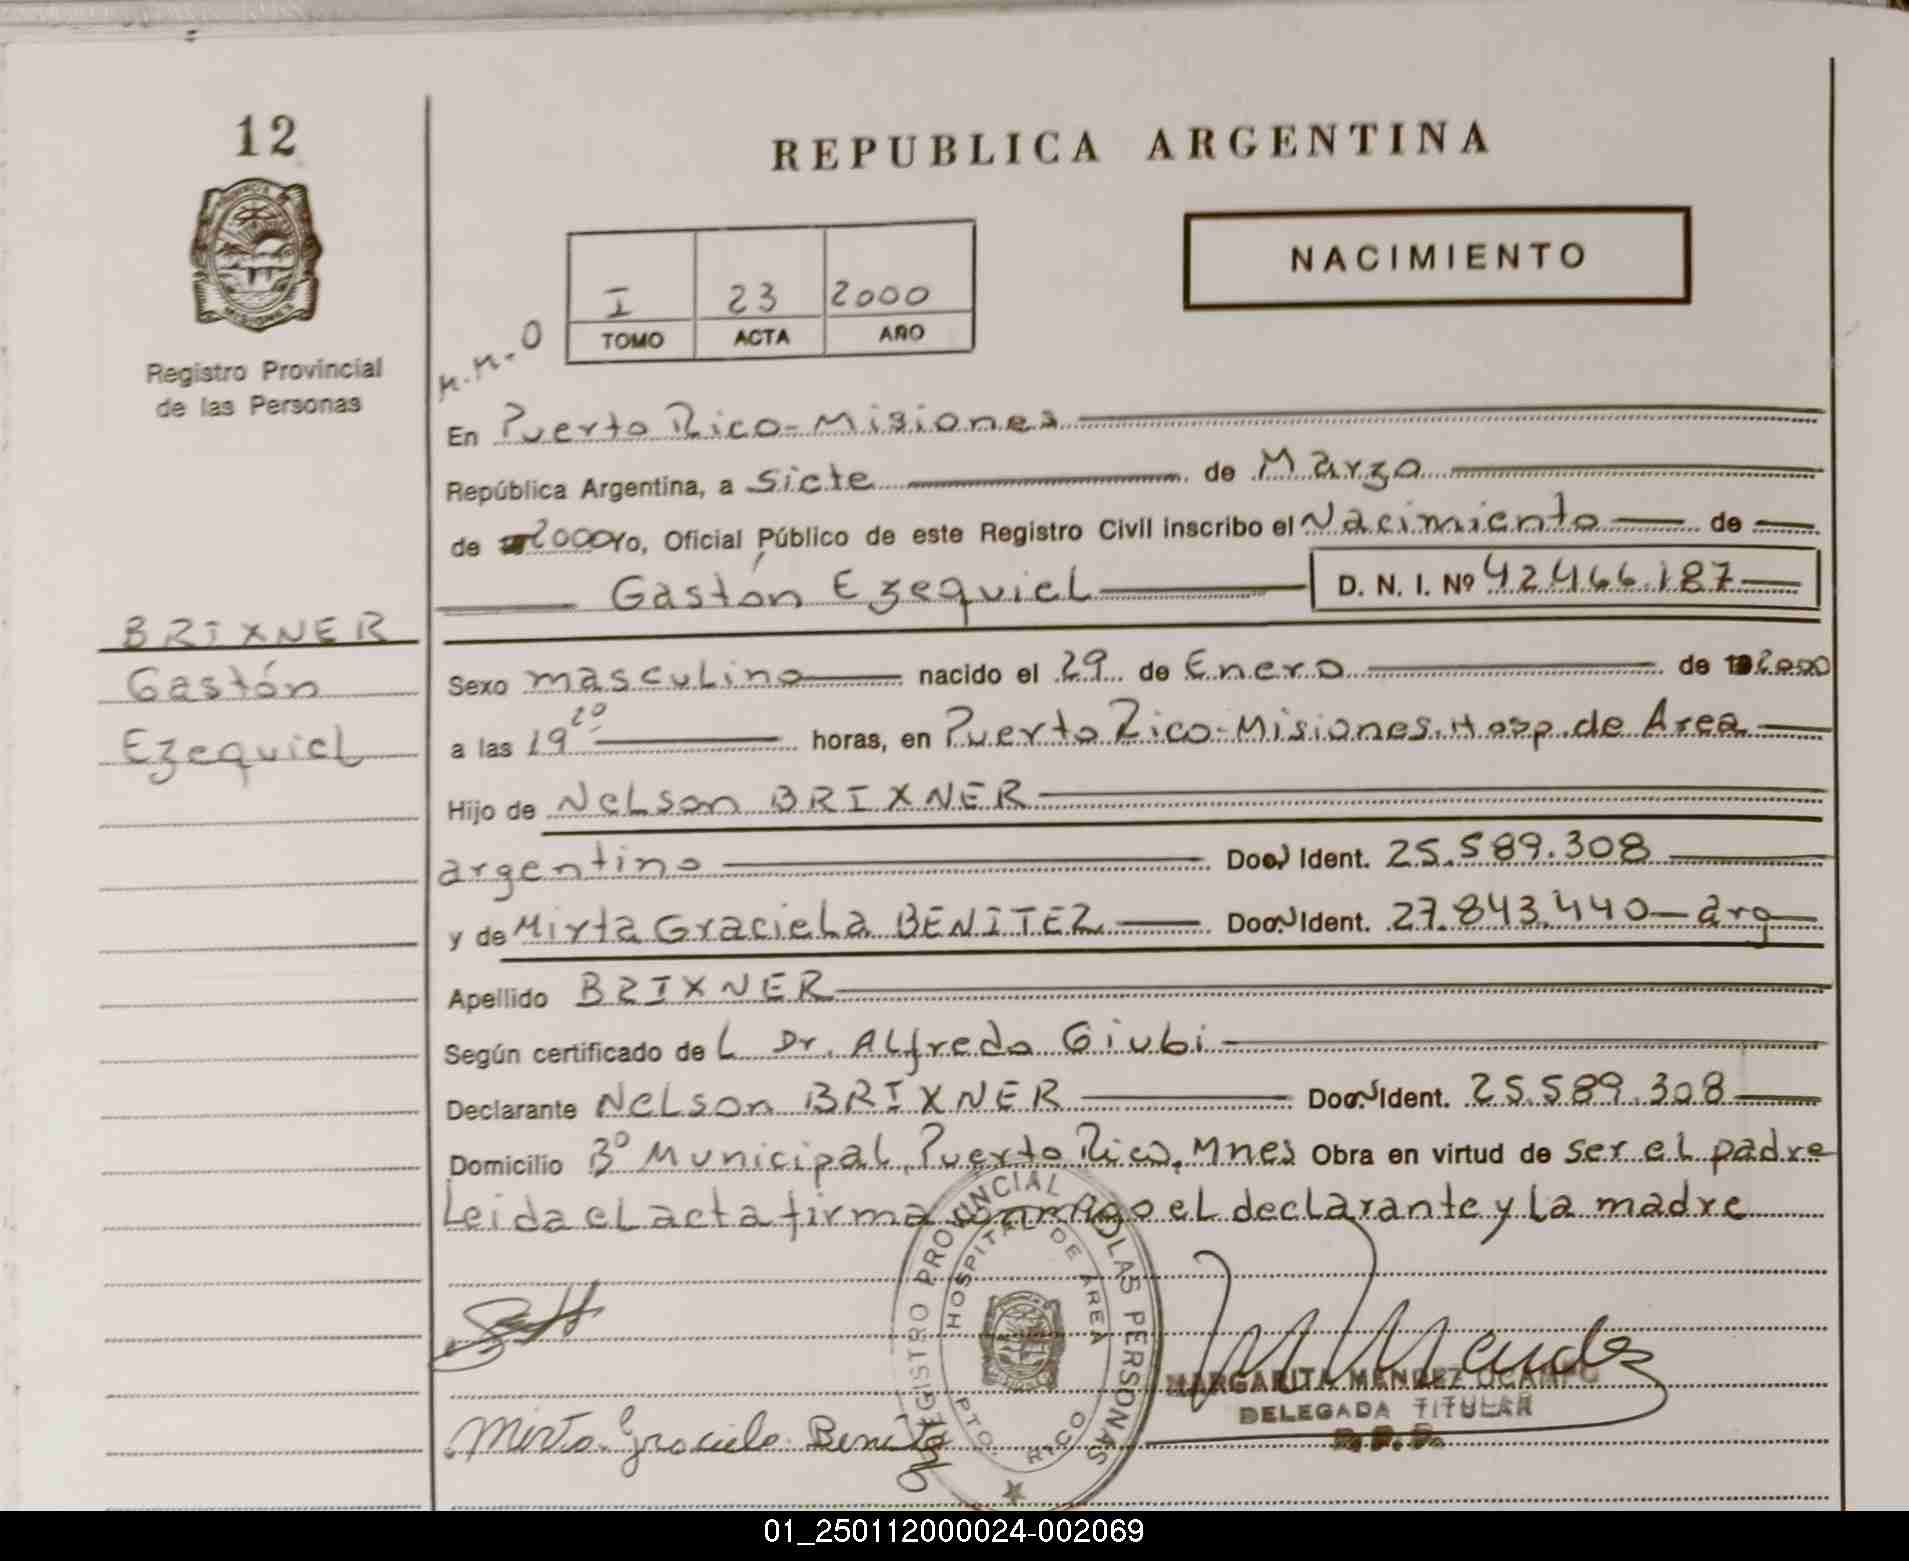 12
REPUBLICA ARGENTINA
NACIMIENTO
I 23 2000
TOMO ACTA AÑO
Registro Provincial
de las Personas
En Puerto Rico - Misiones
República Argentina, a siete de Marzo
de 2000 Yo, Oficial Público de este Registro Civil inscribo el Nacimiento de
Gastón Ezequiel D. N. I. Nº 42.466.187
BRIXNER
Gastón
Ezequiel
Sexo masculino nacido el 29 de Enero de 2000
a las 19 20 horas, en Puerto Rico - Misiones. Hosp. de Area
Hijo de Nelson BRIXNER
argentino Doc. Ident. 25.589.308
y de Mirta Graciela BENITEZ Doc. Ident. 27.843.440 - arg
Apellido BRIXNER
Según certificado del Dr. Alfredo Giubi
Declarante Nelson BRIXNER Doc. Ident. 25.589.308
Domicilio Bº Municipal, Puerto Rico, Mnes Obra en virtud de ser el padre
Leida el acta firma conmigo el declarante y la madre
REGISTRO PROVINCIAL DE LAS PERSONAS
HOSPITAL DE AREA
PTO. RICO
MARGARITA MENDEZ OCAMPO
DELEGADA TITULAR
Mirta Graciela Benitez
01_250112000024-002069